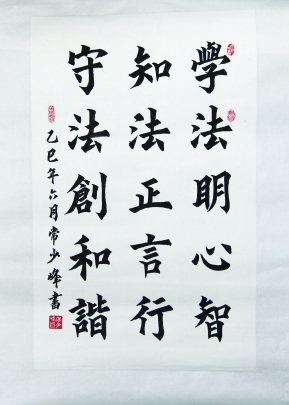 學法明心智
知法正言行
守法創和諧
乙巳年六月常少峰書